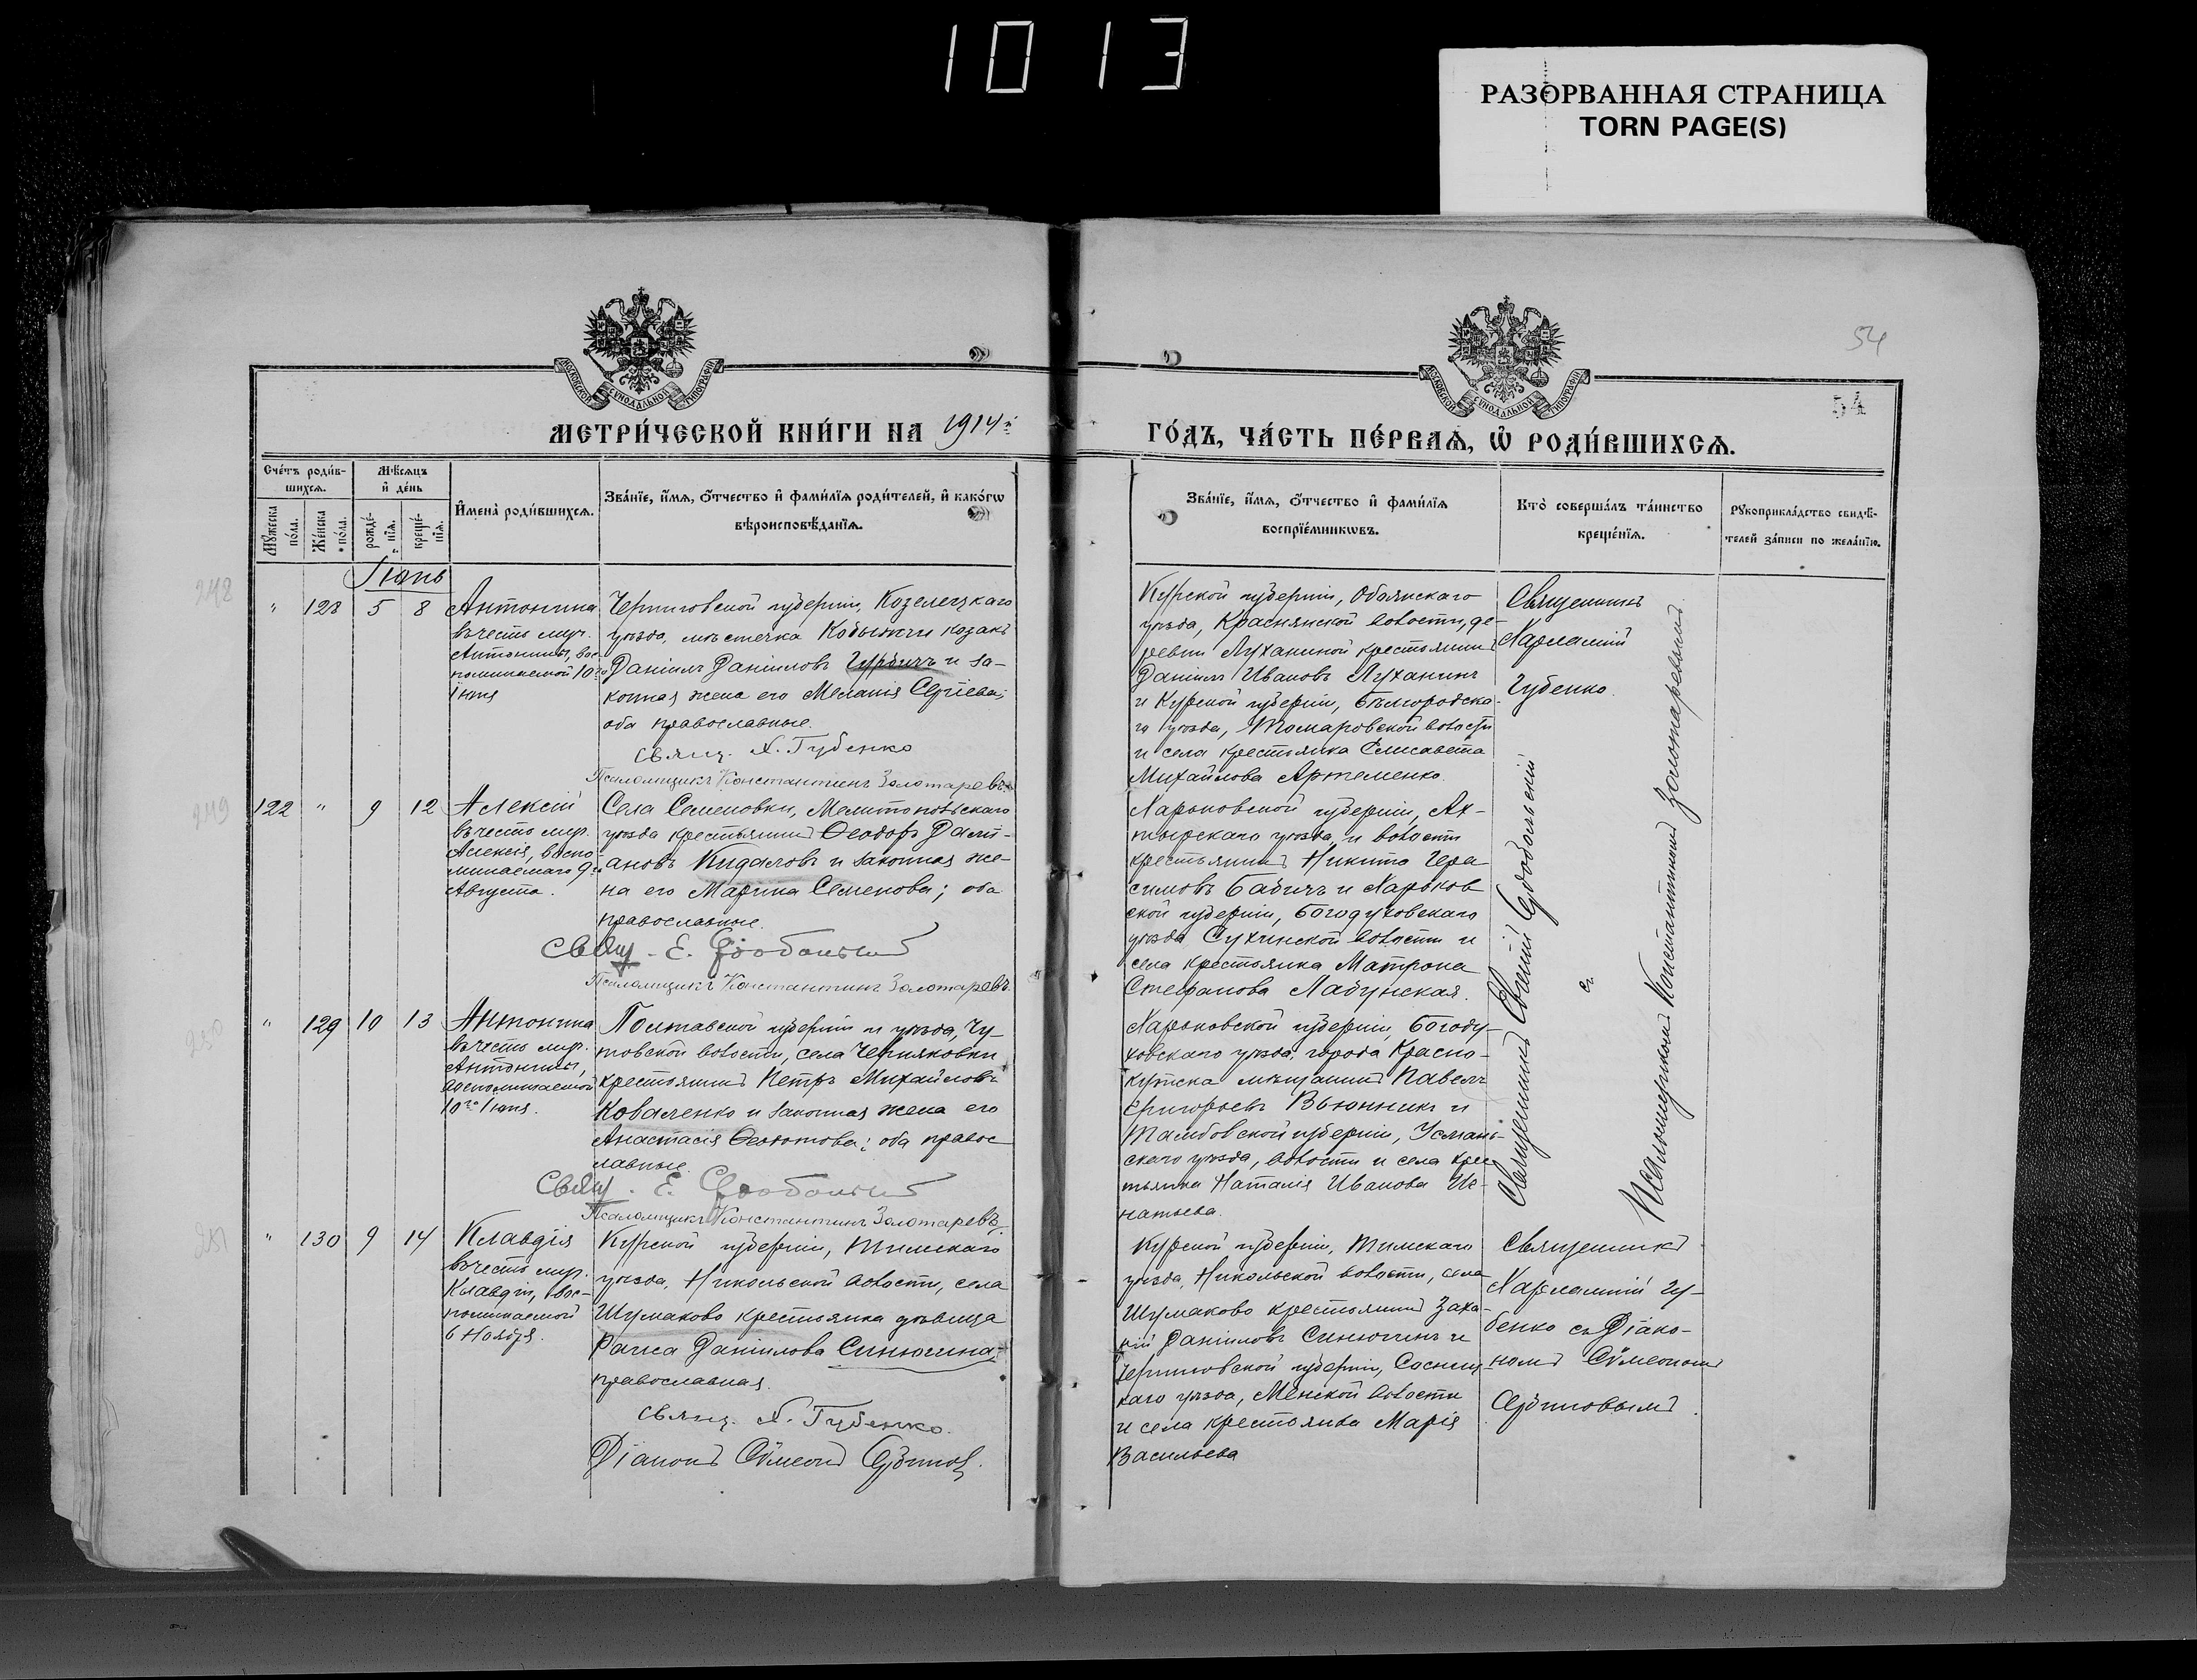 1013
РАЗОРВАННАЯ СТРАНИЦА
TORN PAGE(S)
54
54
МЕТРИ́ЧЕСКОЙ КНИ́ГИ НА 1914й
ГО́ДЪ, ЧА́СТЬ ПЕ́РВАѦ, Ѡ҆ РОДИ́ВШИХСѦ.
Сче́тъ роди́в-
шихсѧ.
Мѣ́сѧцъ
и҆ де́нь
Мꙋ́жеска
по́ла.
Же́нска
по́ла.
рожде́-
нїѧ.
креще́-
нїѧ.
И҆мена̀ роди́вшихсѧ.
Зва́нїе, и҆́мѧ, ѻ҆́тчество и҆ фами́лїѧ роди́телей, и҆ како́гѡ
вѣроисповѣ́данїѧ.
Зва́нїе, и҆́мѧ, ѻ҆́тчество и҆ фами́лїѧ
воспрїе́мникѡвъ.
Кто̀ соверша́лъ та́инство
креще́нїѧ.
Рꙋкоприкла́дство свидѣ́-
телей за́писи по жела́нїю.
Іюнь
248
" 128 5 8
Антонина
въ честь муч.
Антонины, вос-
поминаемой 10го
Іюня
Черниговской губерніи, Козелецкаго
уѣзда, мѣстечка Кобыжчи козакъ
Даніилъ Даніиловъ Гурбичъ и за-
конная жена его Меланія Сергіева;
оба православные.
Свящ. Х. Губенко
Псаломщикъ Константинъ Золотаревъ.
Курской губерніи, Обоянскаго
уѣзда, Краснянской волости, де-
ревни Луханиной крестьянинъ
Даніилъ Ивановъ Луханинъ
и Курской губерніи, Бѣлгородска-
го уѣзда, Томаровской волости
и села крестьянка Елисавета
Михайлова Артеменко.
Священникъ
Харлампій
Губенко.
249
122 " 9 12
Алексій
въ честь муч.
Алексія, воспо-
минаемаго 9го
Августа.
Села Семеновки, Мелитопольскаго
уѣзда крестьянинъ Ѳеодоръ Дамі-
ановъ Кидаловъ и законная же-
на его Марина Семенова; оба
православные.
Свящ. Е.
Псаломщикъ Константинъ Золотаревъ.
Харьковской губерніи, Ах-
тырскаго уѣзда, и волости
крестьянинъ Никита Гера-
симовъ Бабичъ и Харьков
ской губерніи, Богодуховскаго
уѣзда волости и
села крестьянка Матрона
Стефанова
Священникъ Евгеній
съ
Псаломщикомъ Константиномъ Золотаревымъ
250
" 129 10 13
Антонина
въ честь муч.
Антонины,
воспоминаемой
10го Іюня.
Полтавской губерніи и уѣзда, Чу-
товской волости, села Черняковки
крестьянинъ Петръ Михайловъ
Коваленко и законная жена его
Анастасія; оба правос
лавные.
Свящ. Е.
Псаломщикъ Константинъ Золотаревъ.
Харьковской губерніи, Богоду-
ховскаго уѣзда, города Красно-
кутска мѣщанинъ Павелъ
Григорьевъ Вьюнникъ и
Тамбовской губерніи, Усмань-
скаго уѣзда, волости и села крес
тьянка Наталія Иванова Иг-
натьева.
251
" 130 9 14
Клавдія
въ честь муч.
Клавдіи, вос-
поминаемой
6 Ноября.
Курской губерніи, Тимскаго
уѣзда, Никольской волости, села
Шумаково крестьянка дѣвица
Раиса Даніилова Синюгина
православная.
Свящ. Х. Губенко.
Діаконъ Сѵмеонъ
Курской губерніи, Тимскаго
уѣзда, Никольской волости, села
Шумаково крестьянинъ Заха-
рій Даніиловъ Синюгинъ и
Черниговской губерніи, Сосниц-
каго уѣзда, Менской волости
и села крестьянка Марія
Васильева
Священникъ
Харлампій Гу-
бенко съ Діако-
номъ Сѵмеономъ